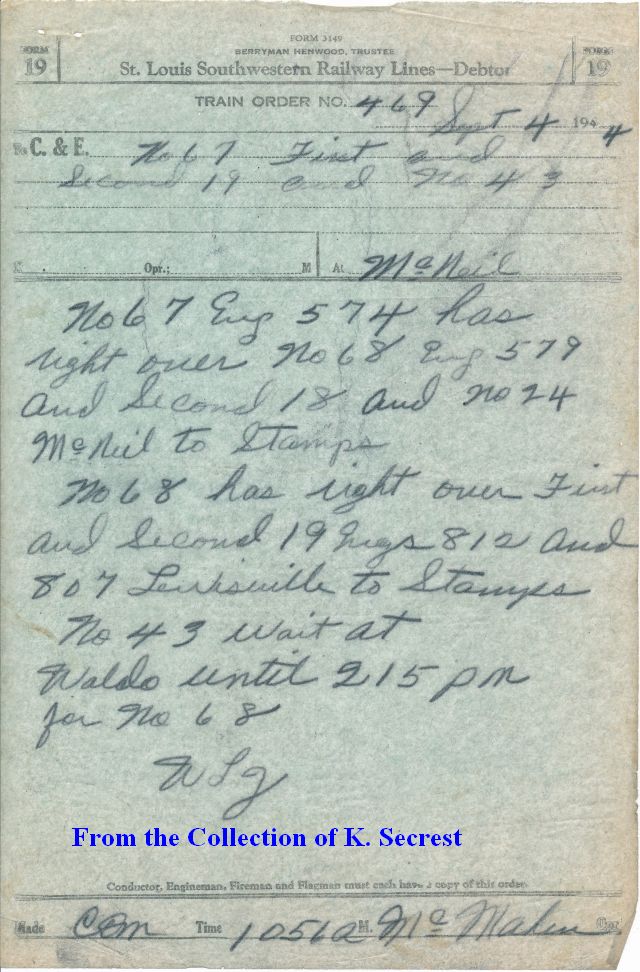 FORM 3149
BERRYMAN HENWOOD, TRUSTEE
FORM 19 St. Louis Southwestern Railway Lines—Debtor FORM 19
TRAIN ORDER NO. 469 Sept 4 1944
To C. & E. No 67 First and
Second 19 and No 43
X Opr.; M At McNeil
No 67 Eng 574 has
right over No 68 Eng 579
and Second 18 and No 24
McNeil to Stamps
No 68 has right over First
and Second 19 Engs 812 and
807 Lewisville to Stamps
No 43 wait at
Waldo until 215 pm
for No 68
From the Collection of K. Secrest
Conductor, Engineman, Fireman and Flagman must each have a copy of this order.
Made Com Time 1056 a M. Opr.